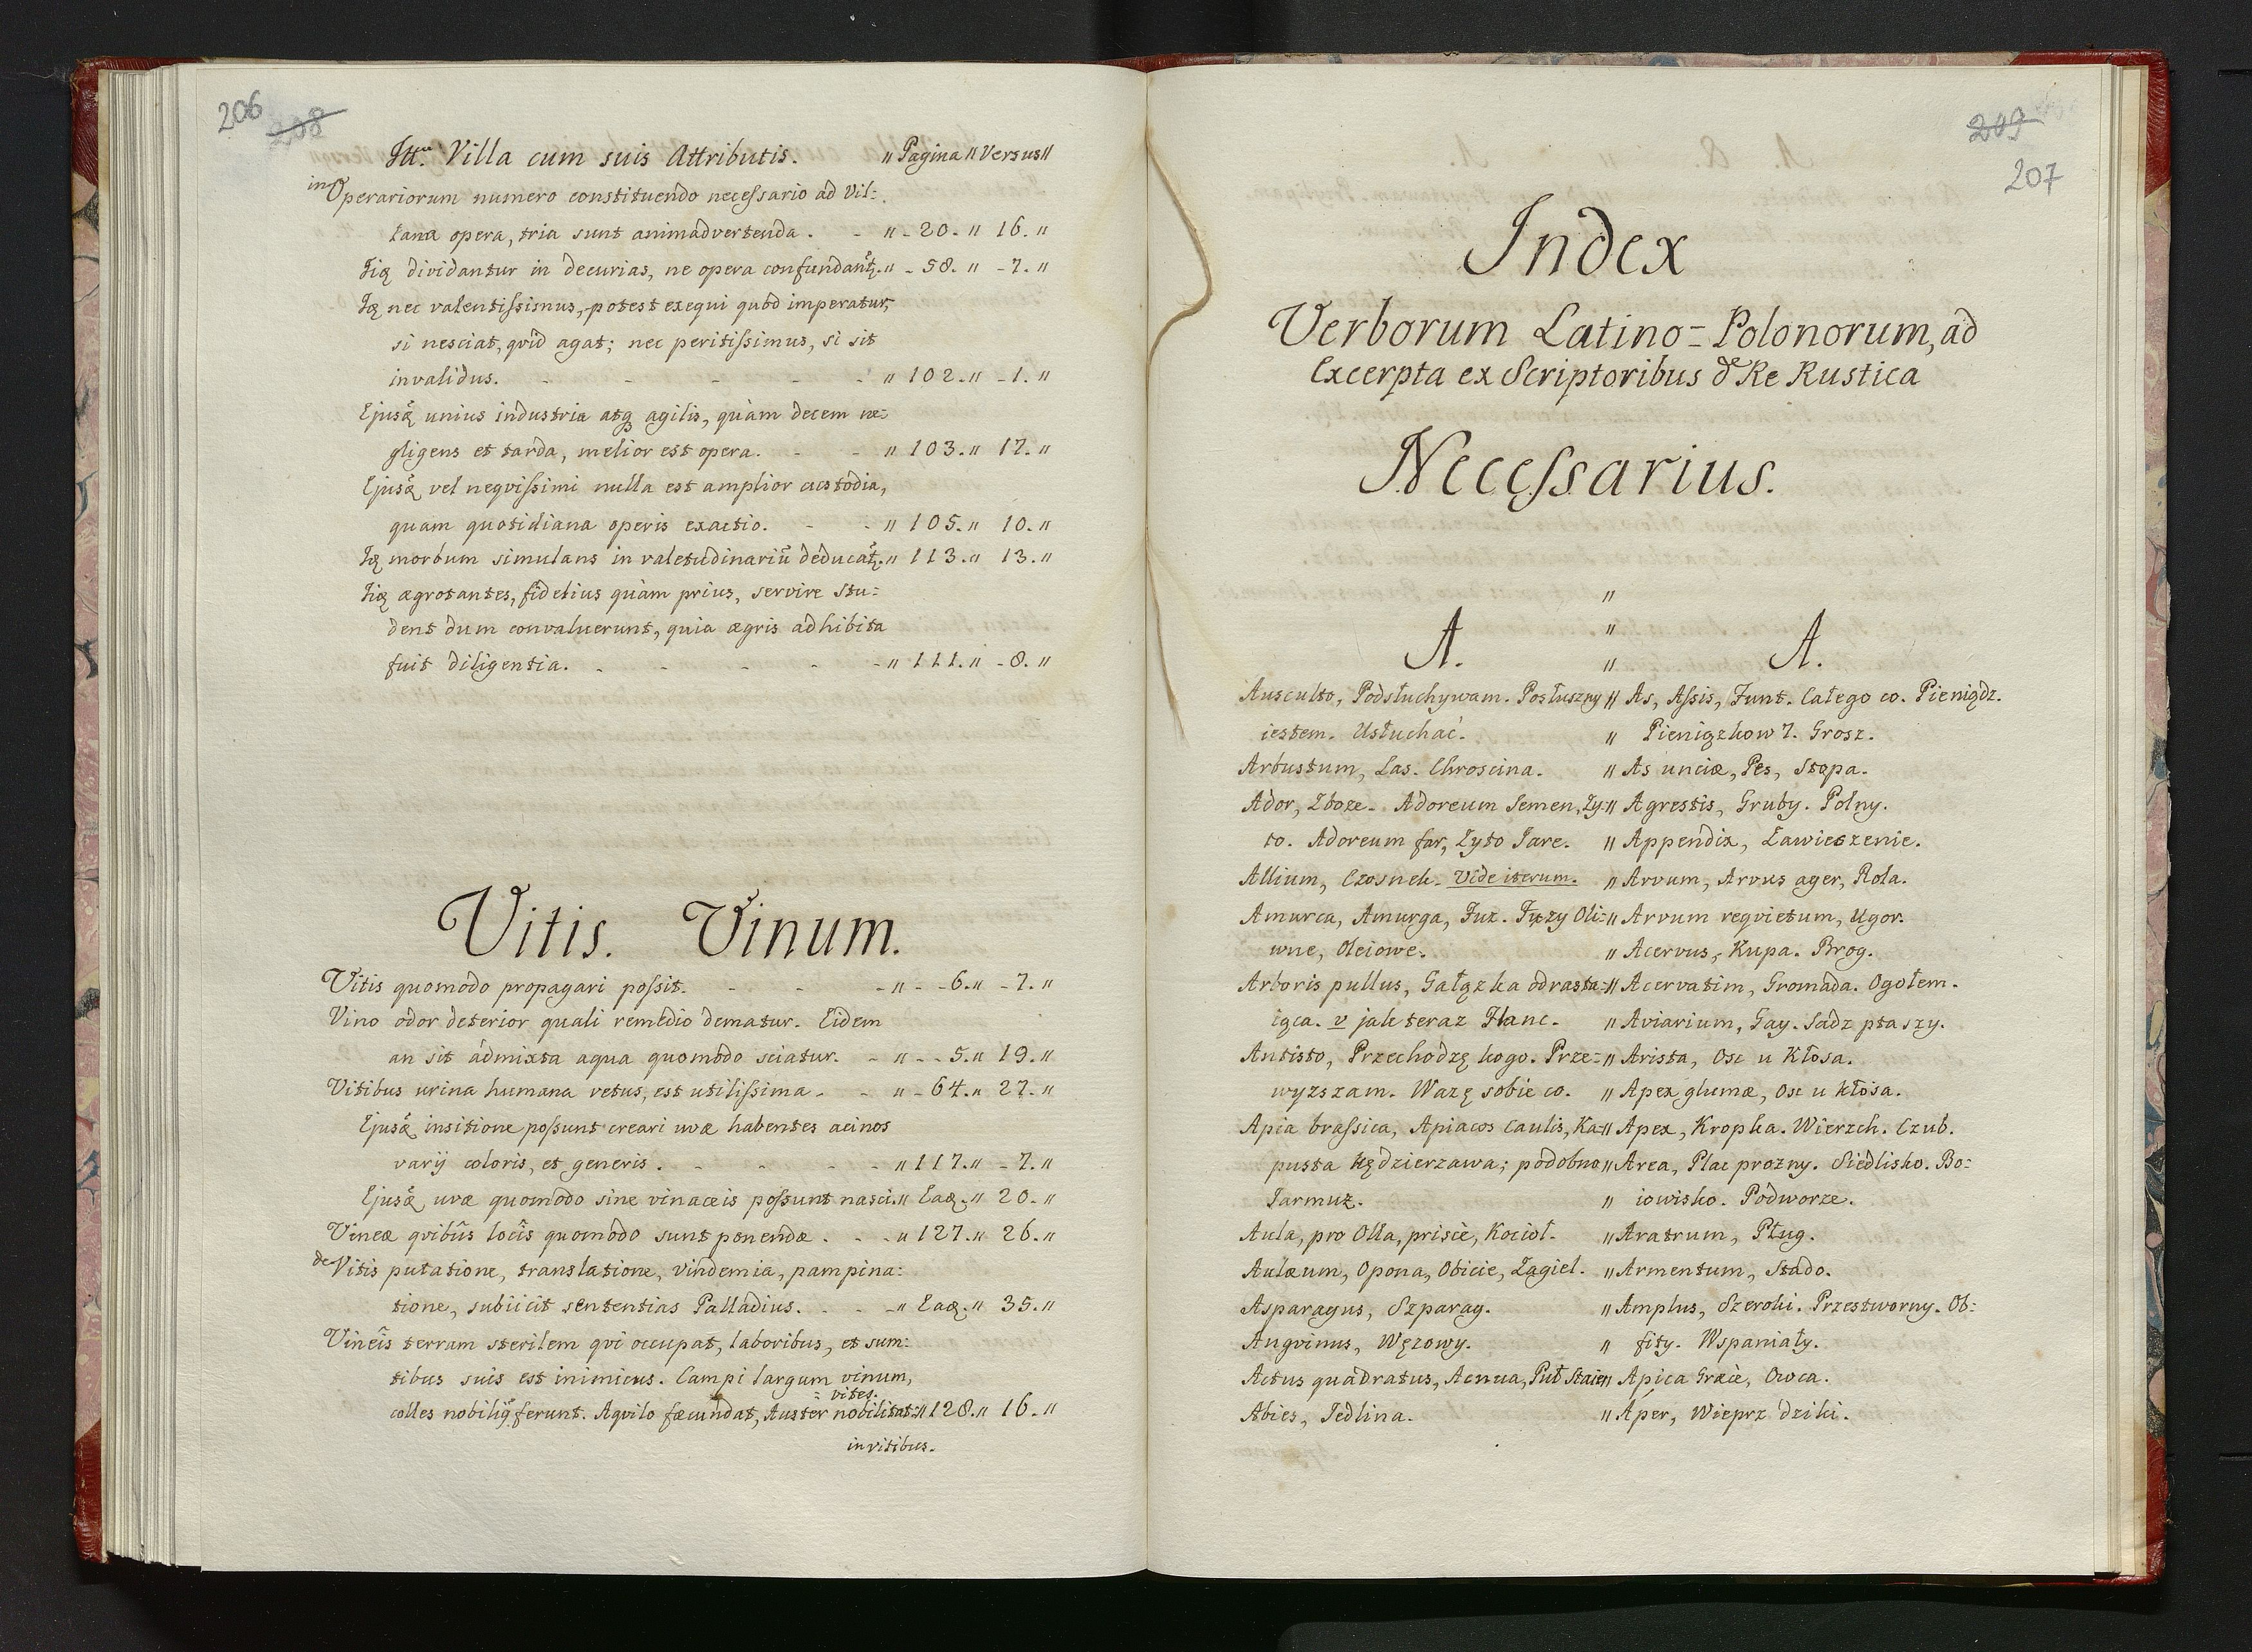 206
208
Itt. Villa cum suis Attributis. " Pagina " Versus "
in Operariorum numero constituendo necessario ad Vil:
lana opera, tria sunt animadvertenda. - " - 20. " 16. "
dividantur in decurias, ne opera confundant. " - 58. " - 7. "
nec valentissimus, potest exequi quod imperatur,
si nesciat, qvid agat; nec peritissimus, si sit
invalidus. - - - - - " 102. " - 1. "
Ejusq unius industria atq agilis, quàm decem ne:
gligens et tarda, melior est opera. - - " 103. " 17. "
Ejusq vel neqvissimi nulla est amplior custodia,
quam quotidiana operis exactio. - - " 105. " 10. "
morbum simulans in valetudinariũ deducat. " 113. " 13. "
ægrotantes, fidelius quàm prius, servire stu:
dent dum convaluerunt, quia ægris adhibita
fuit diligentia. - - - - - " 111. " - 8. "
Vitis. Vinum.
Vitis quomodo propagari possit. - - - " - - 6. " - 7. "
Vino odor deterior quali remedio dematur. Eidem
an sit admixta aqua quomodo sciatur. - " - - 5. " 19. "
Vitibus urina humana vetus, est utilissima - - " - 64. " 27. "
Ejusq insitione possunt creari uvæ habentes acinos
varij coloris, et generis. - - - - " 117. " - 7. "
Ejusq uvæ quomodo sine vinaceis possunt nasci. " Eaq. " 20. "
Vineæ qvibũs locis quomodo sunt ponendæ. - - " 127. " 26. "
de Vitis putatione, translatione, vindemia, pampina:
tione, subiicit sententias Palladius. - - - " Eaq. " 35. "
Vineis terram sterilem qvi occupat, laboribus, et sum:
tibus suis est inimicus. Campi largum vinum,
: vites.
colles nobiliq ferunt. Aqvilo fæcundat, Auster nobilitat: " 128. " 16. "
in vitibus.
209
207
Index
Verborum Latino = Polonorum, ad
Excerpta ex Scriptoribus de Re Rustica
Necessarius.
A. " A.
Ausculto, Podsłuchywam. Posłuszny " As, Assis, Funt. Całego co. Pieniądz.
iestem. Usłuchać. " Pieniązkow 7. Grosz.
Arbustum, Las. Chroscina. " As unciæ, Pes, Stopa.
Ador, Zboze. Adoreum Semen, Zy: " Agrestis, Gruby. Polny.
to. Adoreum far, Zyto Jare. " Appendix, Zawieszenie.
Allium, Czosnek. Vide iterum. " Arvum, Arvus ager, Rola.
Amurca, Amurga, Fuz. Fuzy Oli: " Arvum reqvietum, Ugor.
wne, Oleiowe. " Acervus, Kupa. Brog.
Arboris pullus, Gałązka odrasta: " Acervatim, Gromada. Ogołem.
iąca. v jak teraz Flanc. " Aviarium, Gay. Sadz ptaszy.
Antisto, Przechodzę kogo. Prze: " Arista, Osc u Kłosa.
wyzszam. Wazę sobie co. " Apex glumæ, Osc u kłosa.
Apia brassica, Apiacos caulis, Ka: " Apex, Kropka. Wierzch. Czub.
pusta kędzierzawa; podobno " Area, Plac prozny. Siedlisko. Bo:
Jarmuz. " iowisko. Podworze.
Aula, pro Olla, priscè, Kocioł. " Aratrum, Pług.
Aulæum, Opona, Obicie, Zagiel. " Armentum, Stado.
Asparagus, Szparag. " Amplus, Szeroki. Przestworny. Ob:
Angvinus, Wężowy. " fity. Wspaniały.
Actus quadratus, Acnua, Puł Staien " Apica Græcè, Owca.
Abies, Jedlina. " Aper, Wieprz dziki.